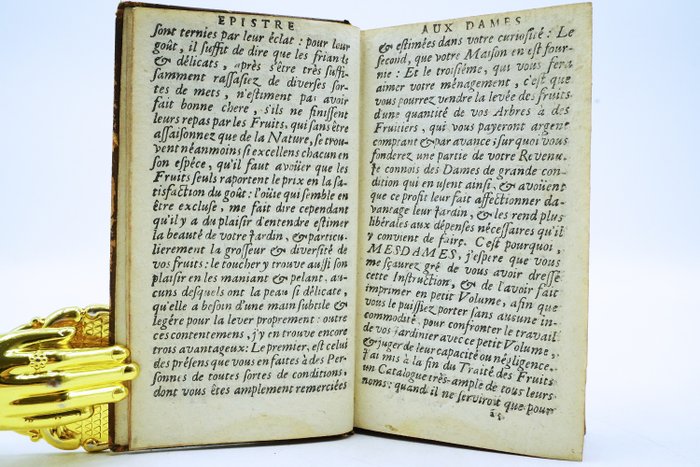 EPISTRE
sont ternies par leur éclat : pour leur
goût, il suffit de dire que les friands
& délicats, après s'être très suffi-
samment rassasiez de diverses sor-
tes de mets, n'estiment pas avoir
fait bonne chere, s'ils ne finissent
leurs repas par les Fruits, qui sans être
assaisonnez que de la Nature, se trou-
vent néanmoins si excellens chacun en
son espéce, qu'il faut avoüer que les
Fruits seuls raportent le prix en la sa-
tisfaction du goût : l'oüie qui semble en
être excluse, me fait dire cependant
qu'il y a du plaisir d'entendre estimer
la beauté de votre Jardin, & particu-
lierement la grosseur & diversité de
vos fruits : le toucher y trouve aussi son
plaisir en les maniant & pelant, au-
cuns desquels ont la peau si délicate,
qu'elle a besoin d'une main subtile &
legére pour la lever proprement : outre
ces contentemens, j'y en trouve encore
trois avantageux : Le premier, est celui
des présens que vous en faites à des Per-
sonnes de toutes sortes de conditions,
dont vous êtes amplement remerciées
AUX DAMES
& estimées dans votre curiosité : Le
second, que votre Maison en est four-
nie : Et le troisiéme, qui vous fera
aimer votre ménagement, c'est que
vous pourrez vendre la levée des fruits
d'une quantité de vos Arbres à des
Fruitiers, qui vous payeront argent
comptant & par avance ; sur quoi vous
fonderez une partie de votre Revenu.
Je connois des Dames de grande con-
dition qui en usent ainsi, & avoüent
que ce profit leur fait affectionner da-
vantage leur Jardin, & les rend plus
libérales aux dépenses nécessaires qu'il
y convient de faire. C'est pourquoi,
MESDAMES, j'espere que vous
me sçaurez gré de vous avoir dressé
cette Instruction, & de l'avoir fait
imprimer en petit Volume, afin que
vous le puissiez porter sans aucune in-
commodité, pour confronter le travail
de vos Jardinier avec ce petit Volume,
& juger de leur capacité ou négligence.
J'ai mis à la fin du Traité des Fruits
un Catalogue très-ample de tous leurs
noms : quand il ne serviroit que pour